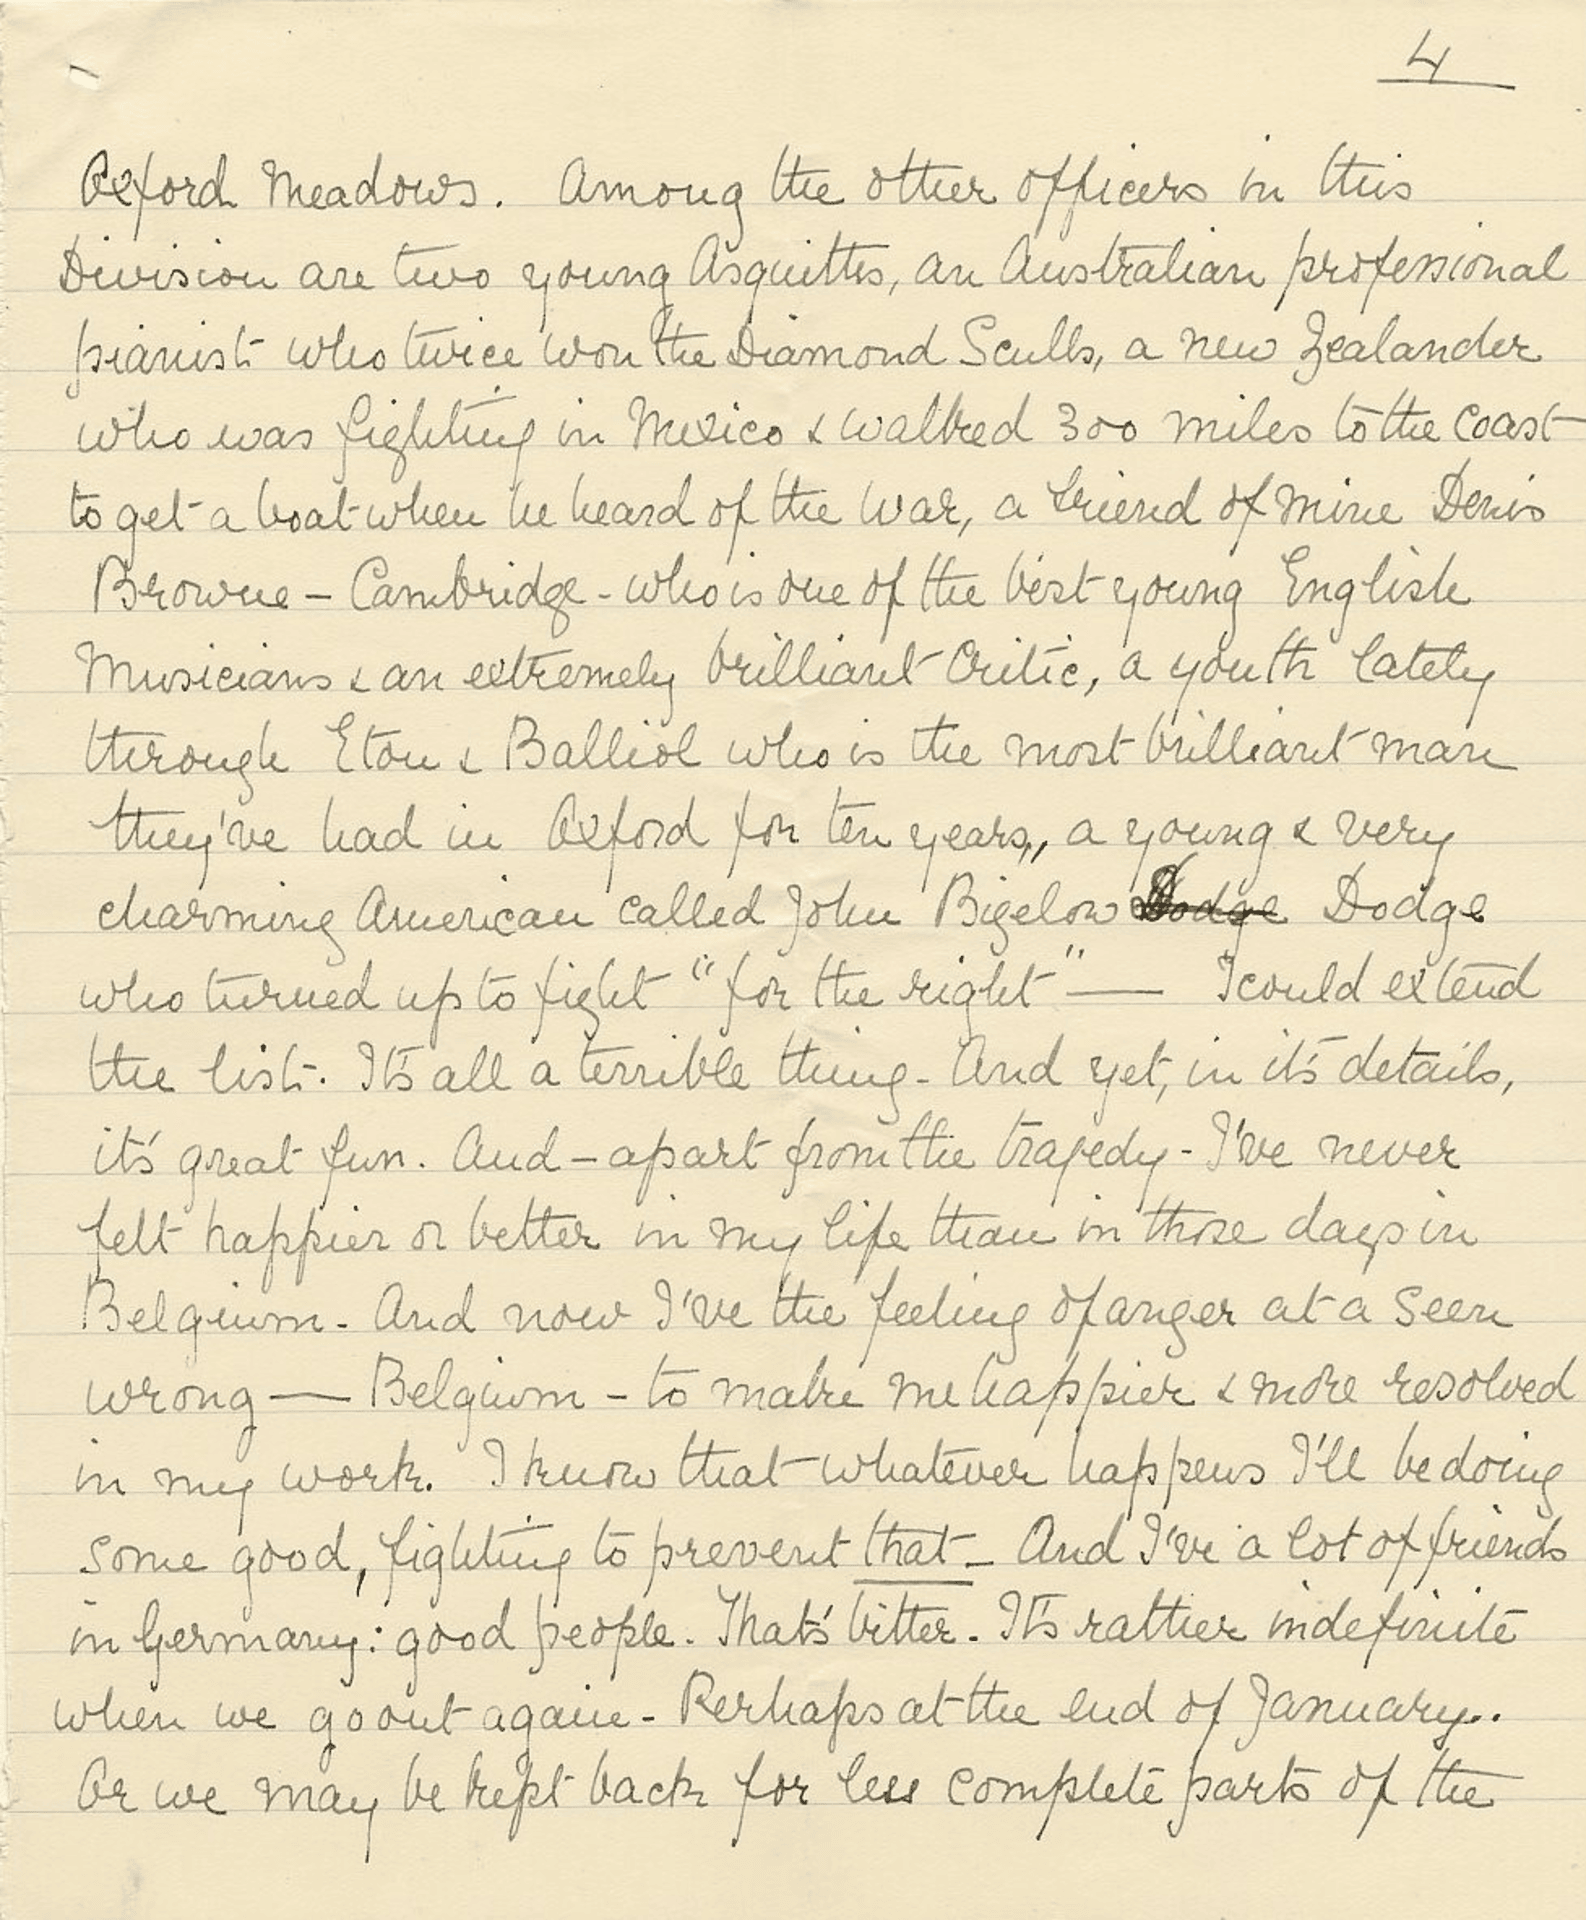 4
Oxford Meadows. Among the other officers in this
Division are two young Asquiths, an Australian professional
pianist who twice won the Diamond Sculls, a new Zealander
who was fighting in Mexico & walked 300 miles to the coast
to get a boat when he heard of the war, a friend of mine Denis
Browne – Cambridge - who is one of the best young English
Musicians & an extremely brilliant Critic, a youth lately
through Eton & Balliol who is the most brilliant man
they've had in Oxford for ten years,, a young & very
charming American called John Bigelow Dodge Dodge
who turned up to fight "for the right" — I could extend
the list. It's all a terrible thing - And yet, in it's details,
it's great fun. And – apart from the tragedy - I've never
felt happier or better in my life than in those days in
Belgium - And now I've the feeling of anger at a seen
wrong — Belgium – to make me happier & more resolved
in my work. I know that whatever happens I'll be doing
some good, fighting to prevent that – And I've a lot of friends
in Germany: good people. That's bitter. It's rather indefinite
when we go out again - Perhaps at the end of January..
Or we may be kept back for less complete parts of the